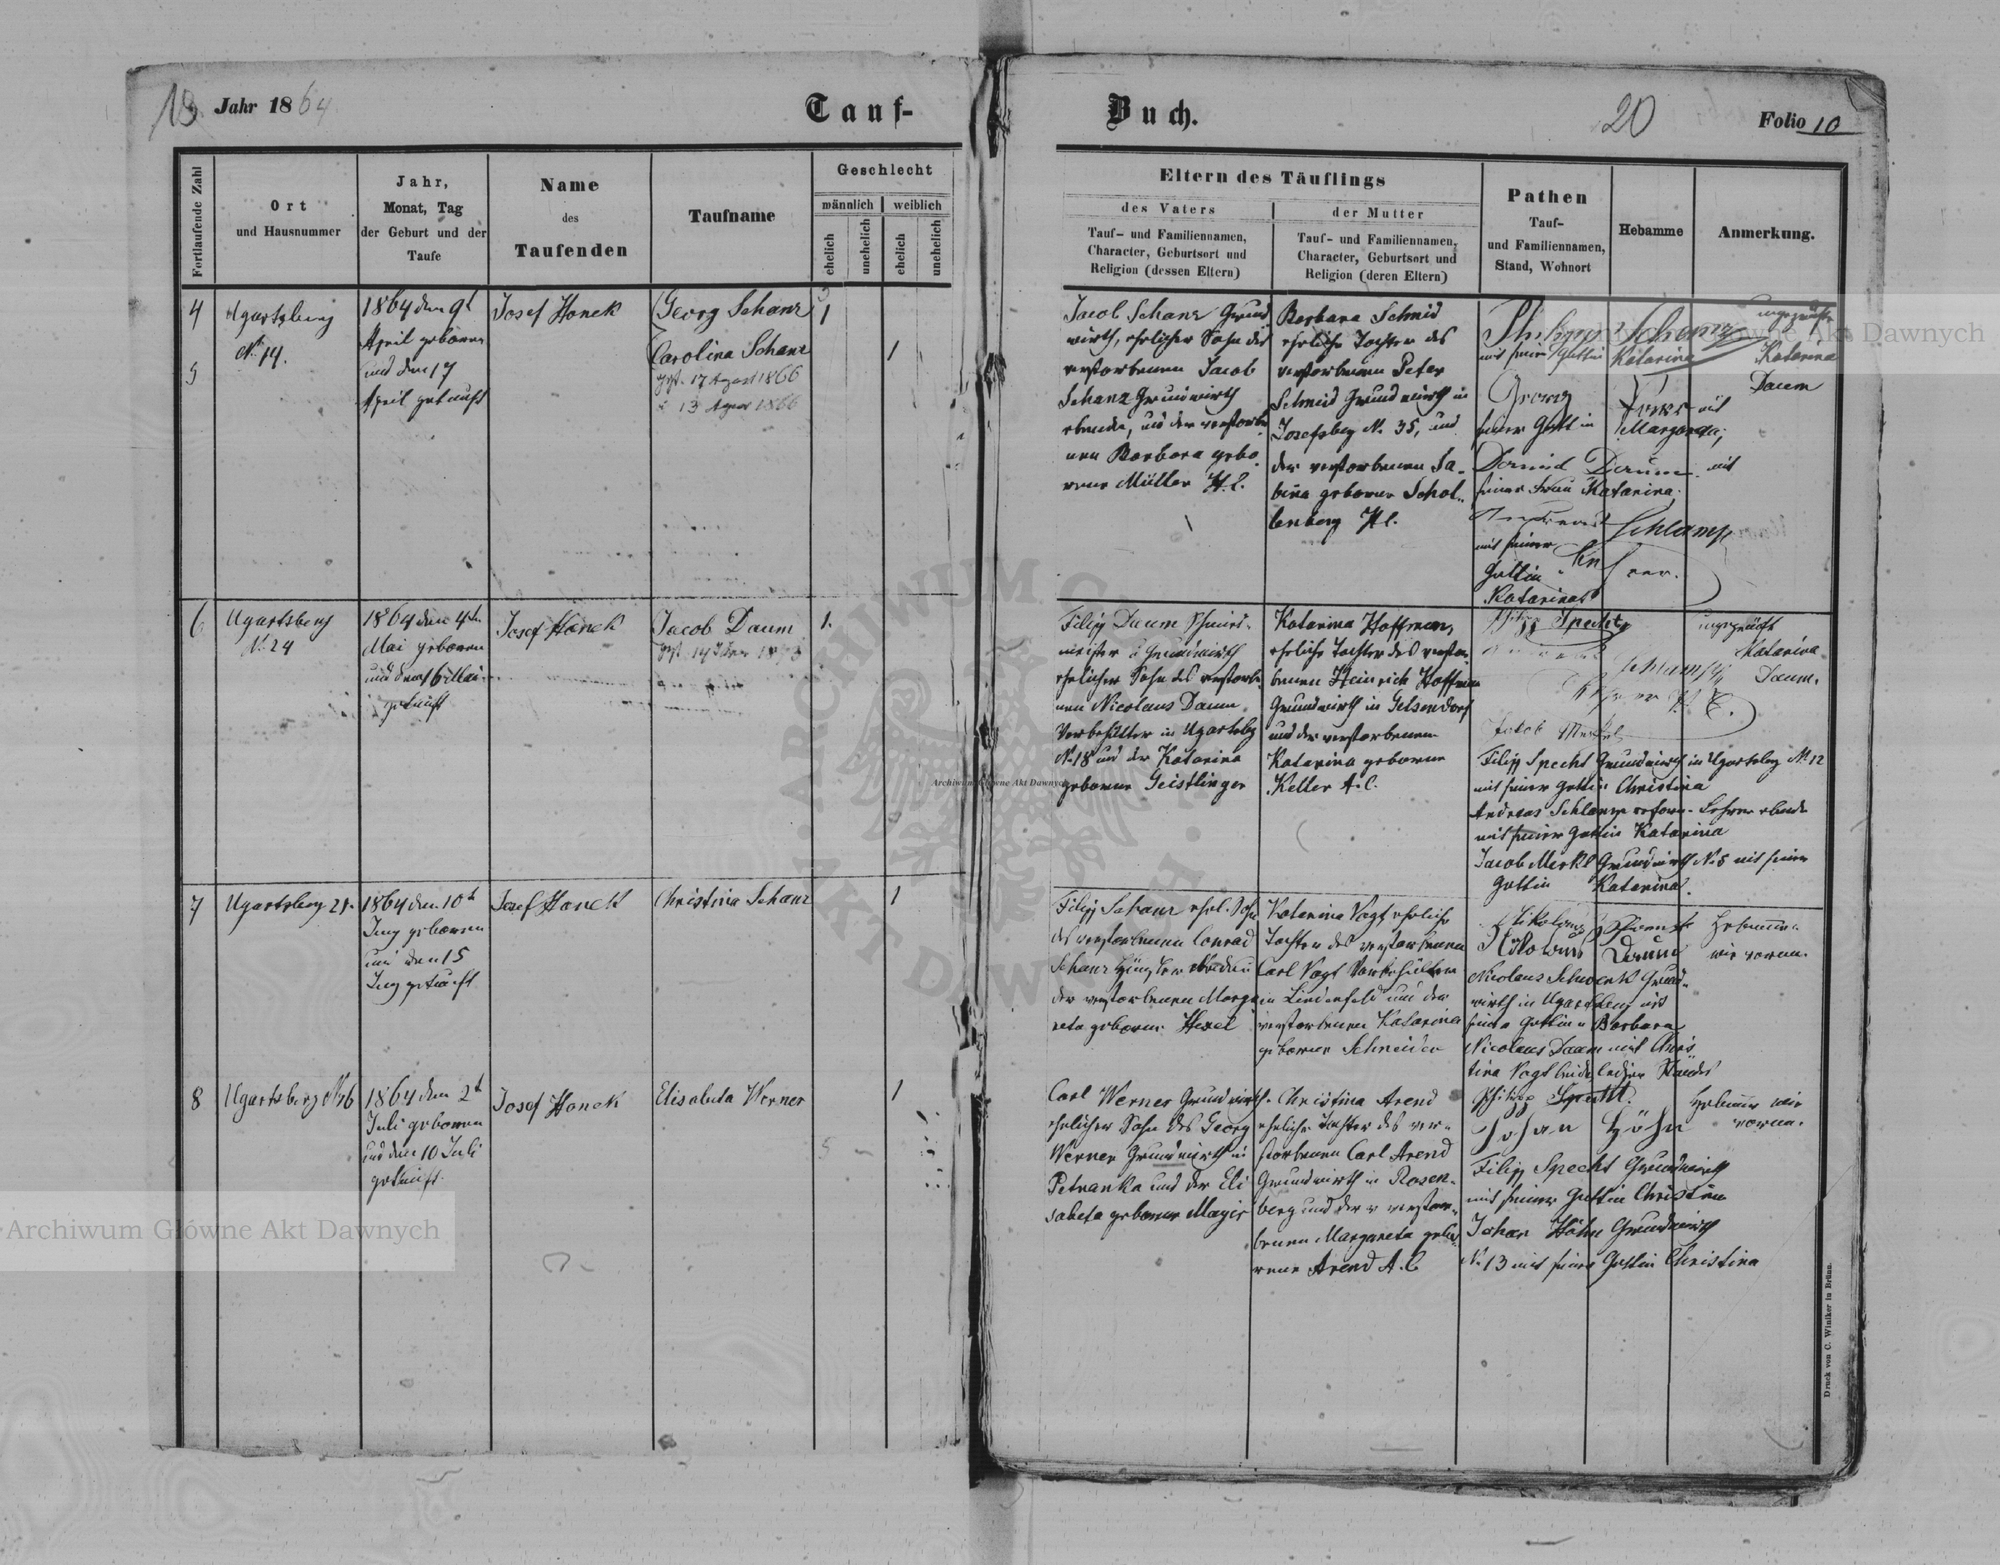 19. Jahr 1864
Tauf-
Buch.
20
Folio 10
Fortlaufende Zahl
Ort
und Hausnummer
Jahr,
Monat, Tag
der Geburt und der
Taufe
Name
des
Taufenden
Taufname
Geschlecht
männlich
weiblich
ehelich
unehelich
ehelich
unehelich
Eltern des Täuflings
des Vaters
Tauf- und Familiennamen,
Character, Geburtsort und
Religion (dessen Eltern)
der Mutter
Tauf- und Familiennamen,
Character, Geburtsort und
Religion (deren Eltern)
Pathen
Tauf-
und Familiennamen,
Stand, Wohnort
Hebamme
Anmerkung.
4
5
Ugartsberg
No 14.
1864 den 9t
April geboren
und den 17
April getauft
Josef Honek
Georg Schanz
Carolina Schanz
gest. 17 August 1866
1
1
Jacob Schanz Grund
wirth, ehelicher Sohn des
verstorbenen Jacob
Schanz Grundwirth
ebenda, und der verstorbe
nen Barbara gebo
rene Müller H.C.
Barbara Schmid
eheliche Tochter des
verstorbenen Peter
Schmid Grundwirth in
Josefsberg No. 35, und
der verstorbenen Sa-
bina geborene Schol-
lenberg H.C.
Philipp Schanz
mit seiner Gattin Katarina
Georg
seiner Gattin Margareta,
Daum mit
seiner Frau Katarina.
Schlamp
mit seiner
Gattin
Katarina
Katarina
Daum
6
Ugartsberg
No. 24
1864 den 4ten
Mai geboren
und den 16 Mai
getauft
Josef Honek
Jacob Daum
1.
Filipp Daum Schmied-
meister u Grundwirth
ehelicher Sohn des verstorbe-
nen Nicolaus Daum
Vorbehälter in Ugartsbg
No. 18 und der Katarina
geborene Geistlinger
Katarina Hoffmann,
eheliche Tochter des verstor-
benen Heinrich Hoffman
Grundwirth in Gelsendorf
und der verstorbenen
Katarina geborene
Keller A.C.
Philipp Specht
Jakob Merkel
Filipp Specht Grundwirth in Ugartsbg No. 12
mit seiner Gattin Christina
Andreas Schlamp reform. Lehrer ebenda
mit seiner Gattin Katarina
Jacob Merkl Grundwirth No. 5 mit seiner
Gattin Katarina.
ungeprüft
Katarina
Daum.
7
Ugartsberg 21.
1864 den 10t
Juny geboren
und den 15
Juny getauft
Josef Honek
Christina Schanz
1
Filipp Schanz ehel. Sohn
des verstorbenen Conrad
Schanz
der verstorbenen Marga
reta geborne Hexel
Katarina Vogt eheliche
Tochter des verstorbenen
Carl Vogt Vorbehälter
in Lindenfeld und der
verstorbenen Katarina
geborner Schneider
Nikolaus Schwenk
Nikolaus Daum
Nicolaus Schwenk Grund-
wirth in Ugartsberg mit
seiner Gattin Barbara
Nicolaus Daum mit Chris
tina Vogt beide ledigen Standes
Hebamme
wie voran.
8
Ugartsberg No 6
1864 den 2t
Juli geboren
und den 10 Juli
getauft.
Josef Honek
Elisabeta Werner
1
Carl Werner Grundwirth
ehelicher Sohn des Georg
Werner Grundwirth in
Petranka und der Eli
sabeta geborner Mayer
Christina Arend
eheliche Tochter des ver-
storbenen Carl Arend
Grundwirth in Rosen-
berg und der verstor-
benen Margareta gebo-
rene Arend A.C
Philipp Specht.
Johan Höhn
Filipp Specht Grundwirth
mit seiner Gattin Christina
Johan Höhn Grundwirth
No. 13 mit seiner Gattin Christina
Hebamme wie
voran.
Druck von C. Winiker in Brünn.
Archiwum Główne Akt Dawnych
Archiwum Główne Akt Dawnych
Archiwum Główne Akt Dawnych
ARCHIWUM GŁÓWNE AKT DAWNYCH